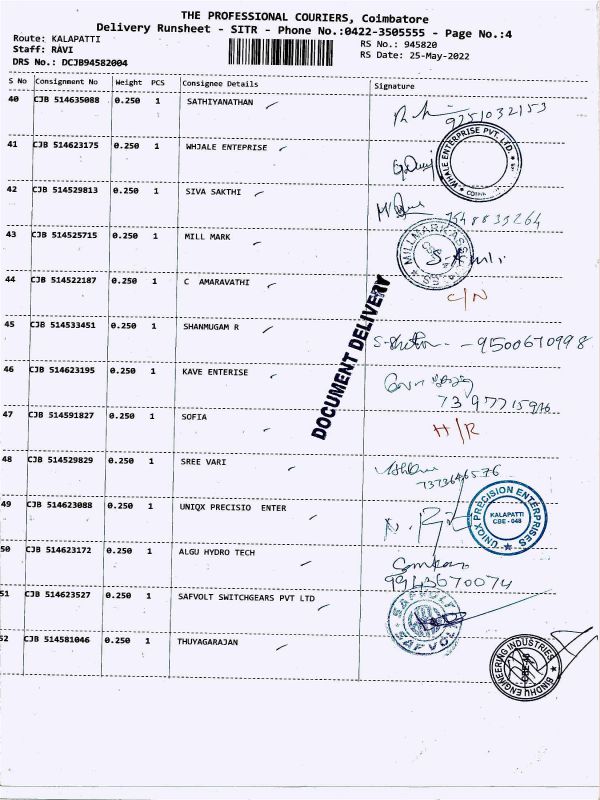 THE PROFESSIONAL COURIERS, Coimbatore
Delivery Runsheet - SITR - Phone No.:0422-3505555 - Page No.:4
Route: KALAPATTI
RS No.: 945820
Staff: RAVI
RS Date: 25-May-2022
DRS No.: DCJB94582004
S No Consignment No Weight PCS Consignee Details Signature
40 CJB 514635088 0.250 1 SATHIYANATHAN 9251032153
41 CJB 514623175 0.250 1 WHJALE ENTEPRISE WHALE ENTERPRISE PVT. LTD.
42 CJB 514529813 0.250 1 SIVA SAKTHI
43 CJB 514525715 0.250 1 MILL MARK
44 CJB 514522187 0.250 1 C AMARAVATHI C/N
45 CJB 514533451 0.250 1 SHANMUGAM R 9500670998
46 CJB 514623195 0.250 1 KAVE ENTERISE
47 CJB 514591827 0.250 1 SOFIA H/R
48 CJB 514529829 0.250 1 SREE VARI 7373646576
49 CJB 514623088 0.250 1 UNIQX PRECISIO ENTER UNIQX PRECISION ENTERPRISES KALAPATTI CBE - 048
50 CJB 514623172 0.250 1 ALGU HYDRO TECH 9943670074
51 CJB 514623527 0.250 1 SAFVOLT SWITCHGEARS PVT LTD SAFVOLT SAFVOL
52 CJB 514581046 0.250 1 THUYAGARAJAN BINDHU ENGINEERING INDUSTRIES
DOCUMENT DELIVERY